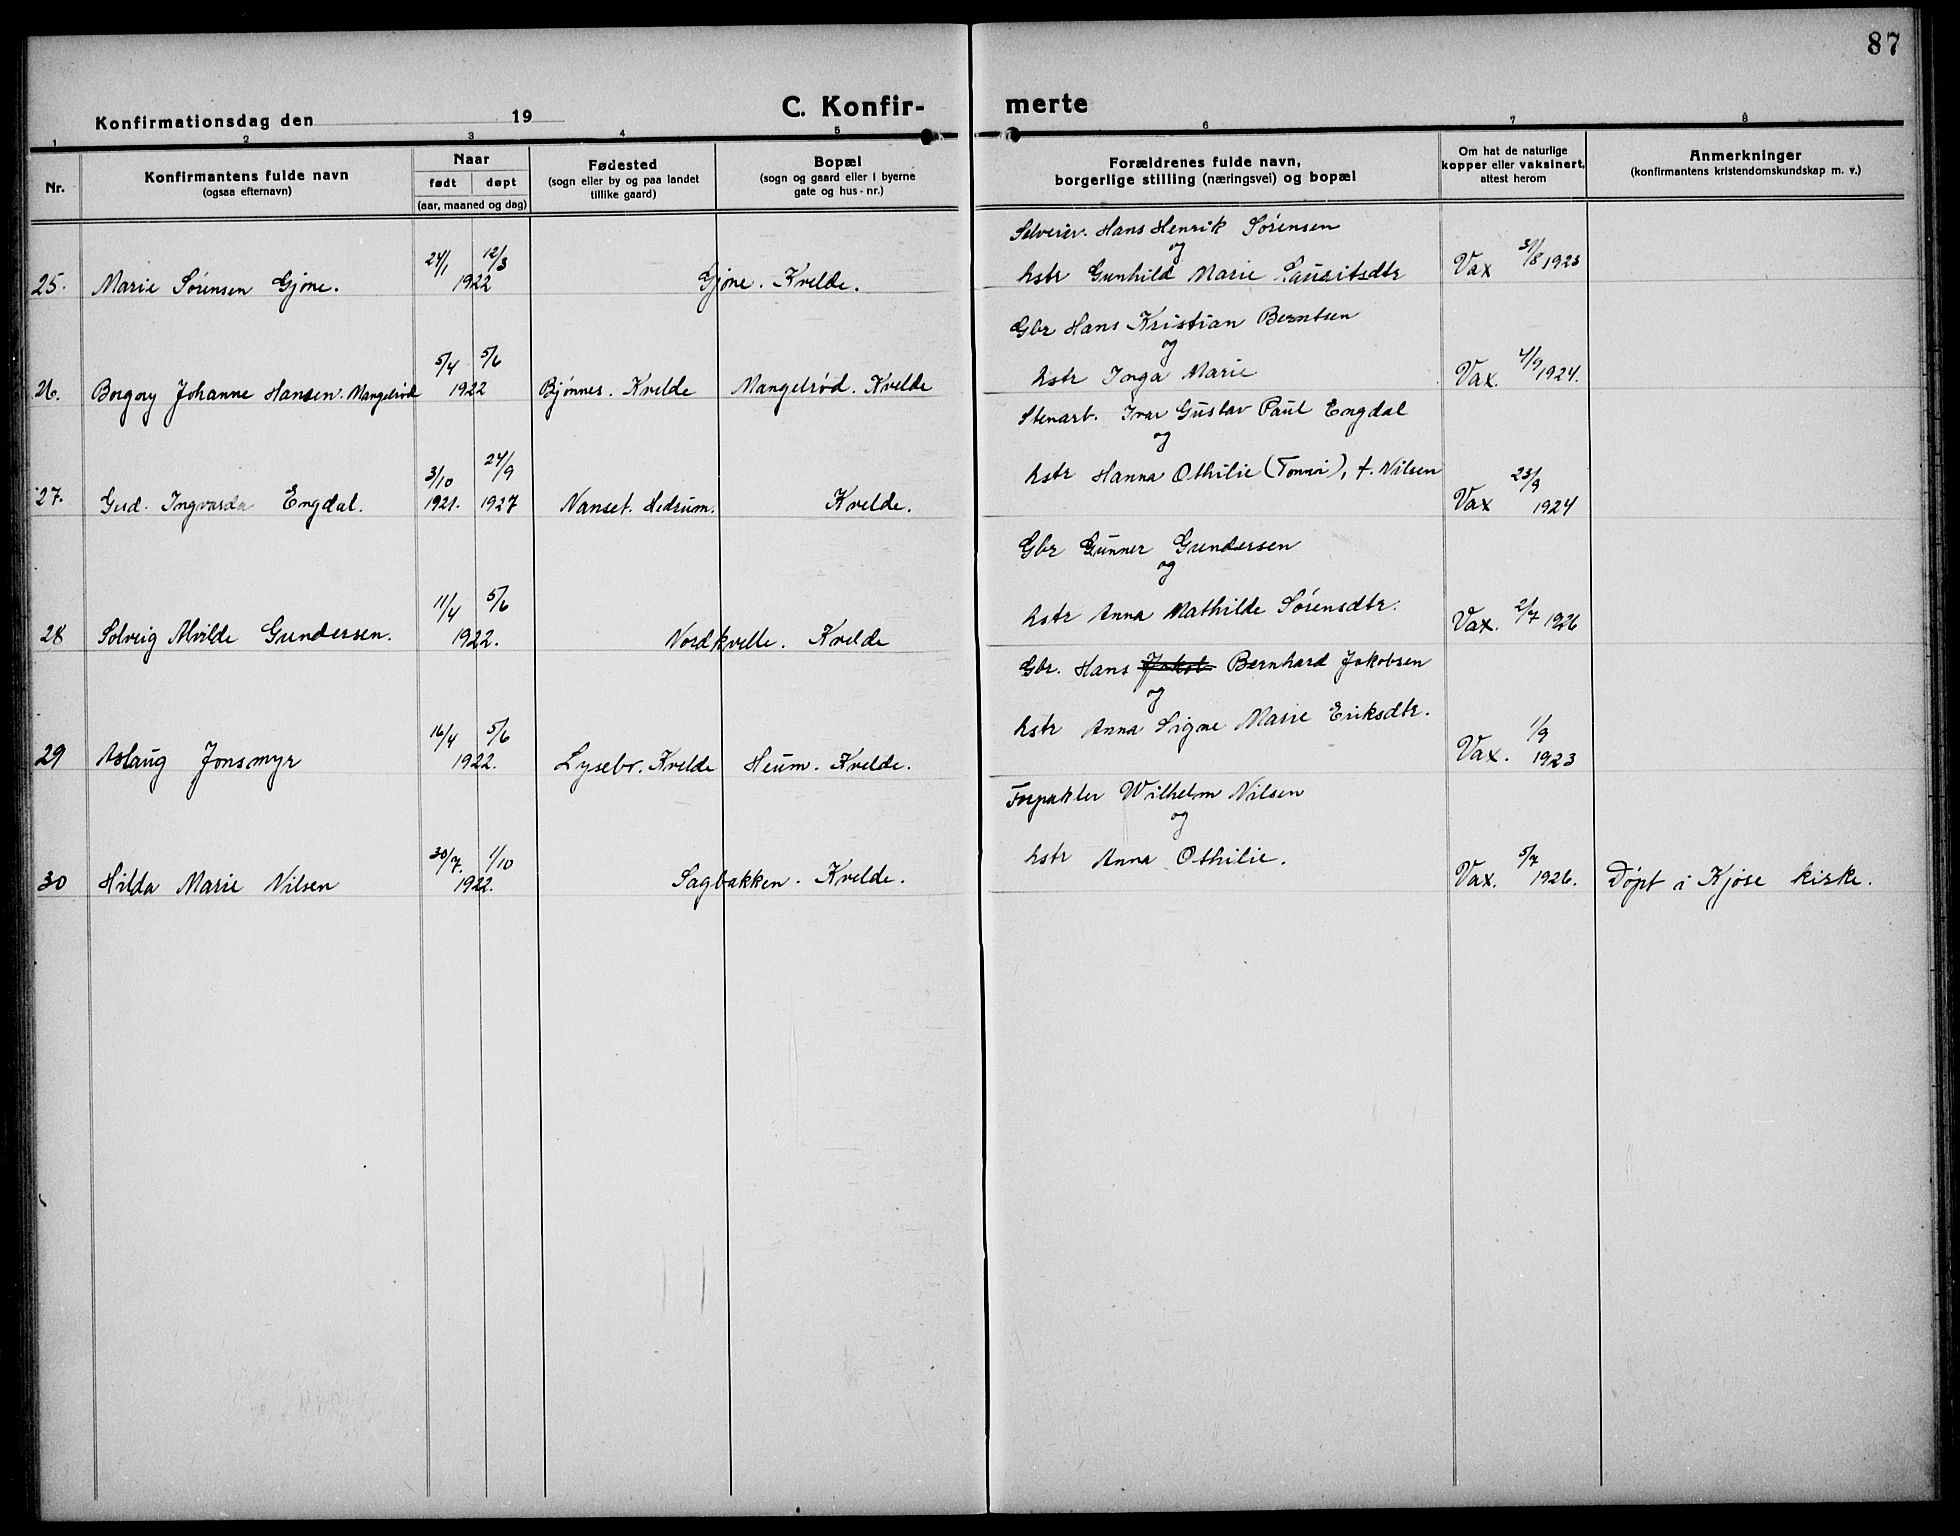 87
C. Konfir- merte
Konfirmationsdag den 19
1 2 3 4 5 6 7 8
Nr.
Konfirmantens fulde navn
(ogsaa efternavn)
Naar
født døpt
(aar, maaned og dag)
Fødested
(sogn eller by og paa landet
tillike gaard)
Bopæl
(sogn og gaard eller i byerne
gate og hus-nr.)
Forældrenes fulde navn,
borgerlige stilling (næringsvei) og bopæl
Om hat de naturlige
kopper eller vaksinert,
attest herom
Anmerkninger
(konfirmantens kristendomskundskap m. v.)
Selveier. Hans Henrik Sørensen
og
24/1 12/3
25. Marie Sørensen Gjøne. 1922 Gjøne. Kvelde. hstr Gunhild Marie Lauritsdtr Vax 31/8 1923
Gbr Hans Kristian Berntsen
og
5/4 5/6
26. Borgny Johanne Hansen. Mangelrød 1922 Bjønnes. Kvelde Mangelrød. Kvelde hstr Inga Marie Vax. 4/9 1924.
Stenarb. Ivar Gustav Paul Engdal
og
3/10 24/9 hstr Hanna Othilie (Tonni), f. Nilsen 23/9
27. Gud. Ingvarda Engdal. 1921. 1927 Nanset. Hedrum. Kvelde. Vax 1924
Gbr Gunner Gundersen
og
11/4 5/6
28 Solveig Alvilde Gundersen. 1922. Nordkvelle. Kvelde hstr Anna Mathilde Sørensdtr. Vax. 2/7 1926
Gbr. Hans Jakob Bernhard Jakobsen
og
16/4 5/6 hstr Anna Signe Marie Eriksdtr. 1/9
29 Aslaug Jonsmyr 1922. Lysebr. Kvelde Heum. Kvelde. Vax. 1923
Forpakter Wilhelm Nilsen
og
30/7. 1/10 hstr Anna Othilie. 5/7
30 Hilda Marie Nilsen 1922. Sagbakken. Kvelde. Vax. 1926. Døpt i Kjøse kirke.